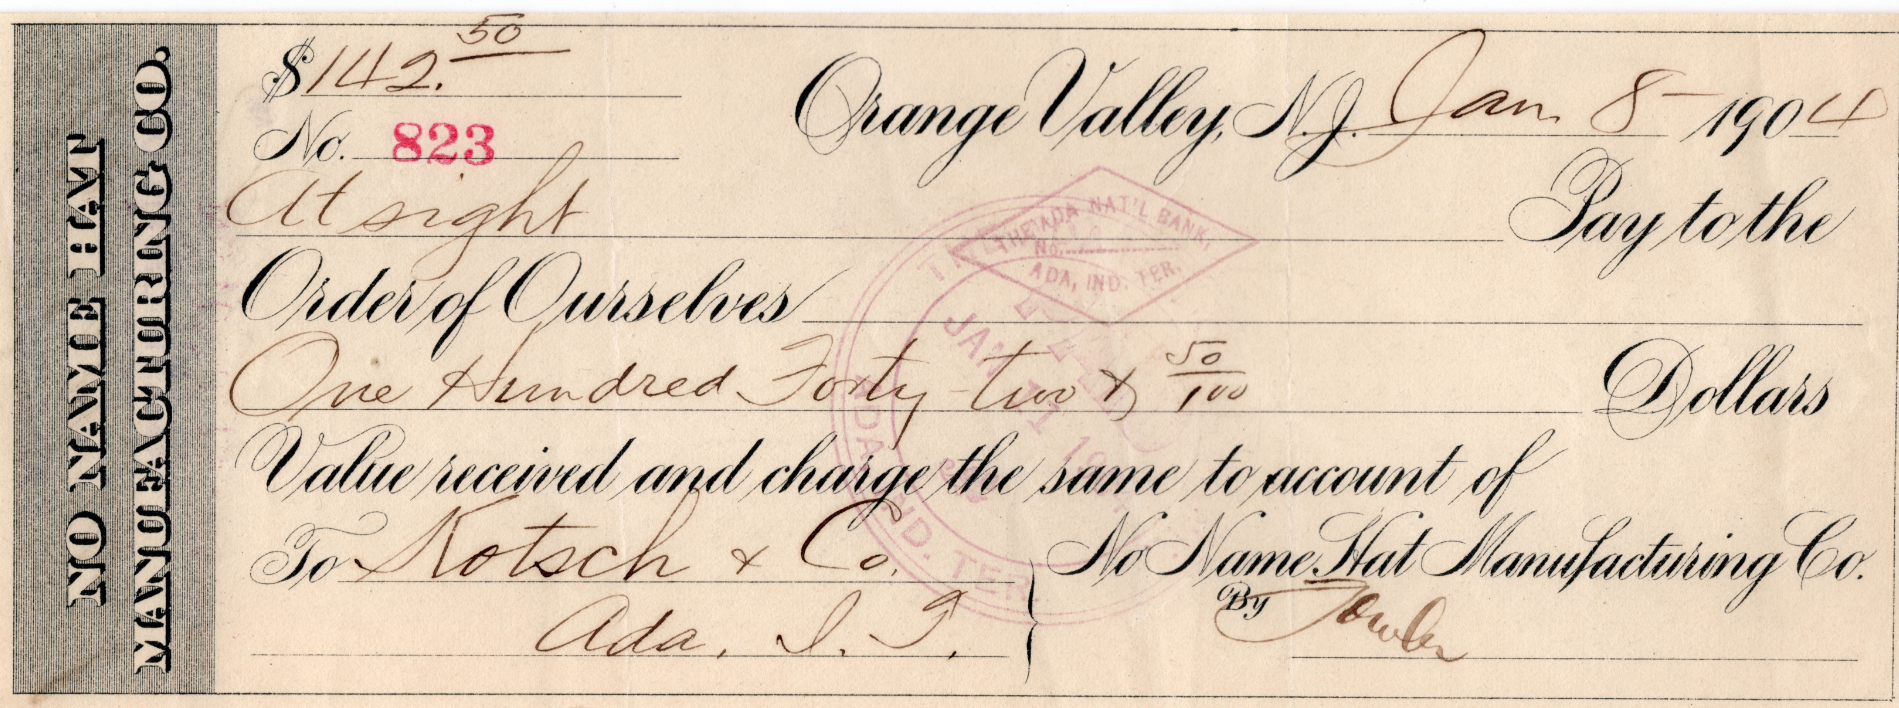 NO NAME HAT
MANUFACTURING CO.
$142.50
No. 823
Orange Valley, N.J. Jan. 8- 1904
At sight Pay to the
Order of Ourselves
One Hundred Forty-two & 50/100 Dollars
Value received and charge the same to account of
To Kotsch & Co.
Ada, I. T.
No Name Hat Manufacturing Co.
By
THE ADA NAT'L BANK,
No.
ADA, IND. TER.
JAN 11
ADA IND. TER.